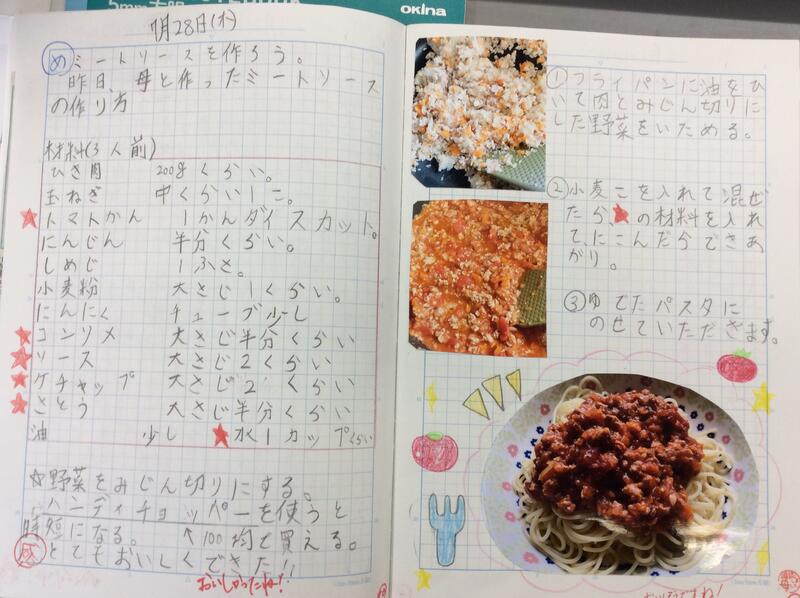 okina
7月28日(木)
めミートソースを作ろう。
昨日、母と作ったミートソース
の作り方
材料(3人前)
ひき肉 200gくらい。
玉ねぎ 中くらい1こ。
★トマトかん 1かんダイスカット。
にんじん 半分くらい。
しめじ 1ふさ。
小麦粉 大さじ1くらい。
にんにく チューブ少し
★コンソメ 大さじ半分くらい
★ソース 大さじ2くらい
★ケチャップ 大さじ2くらい
★さとう 大さじ半分くらい
油 少し ★水1カップくらい
☆野菜をみじん切りにする。
ハンディチョッパーを使うと
時短になる。↑100均で買える。
感とてもおいしくできた!!
おいしかったね!
①フライパンに油をひ
いて肉とみじん切りに
した野菜をいためる。
②小麦こを入れて混ぜ
たら、★の材料を入れ
て、にこんだらできあ
がり。
③ゆでたパスタに
のせていただきます。